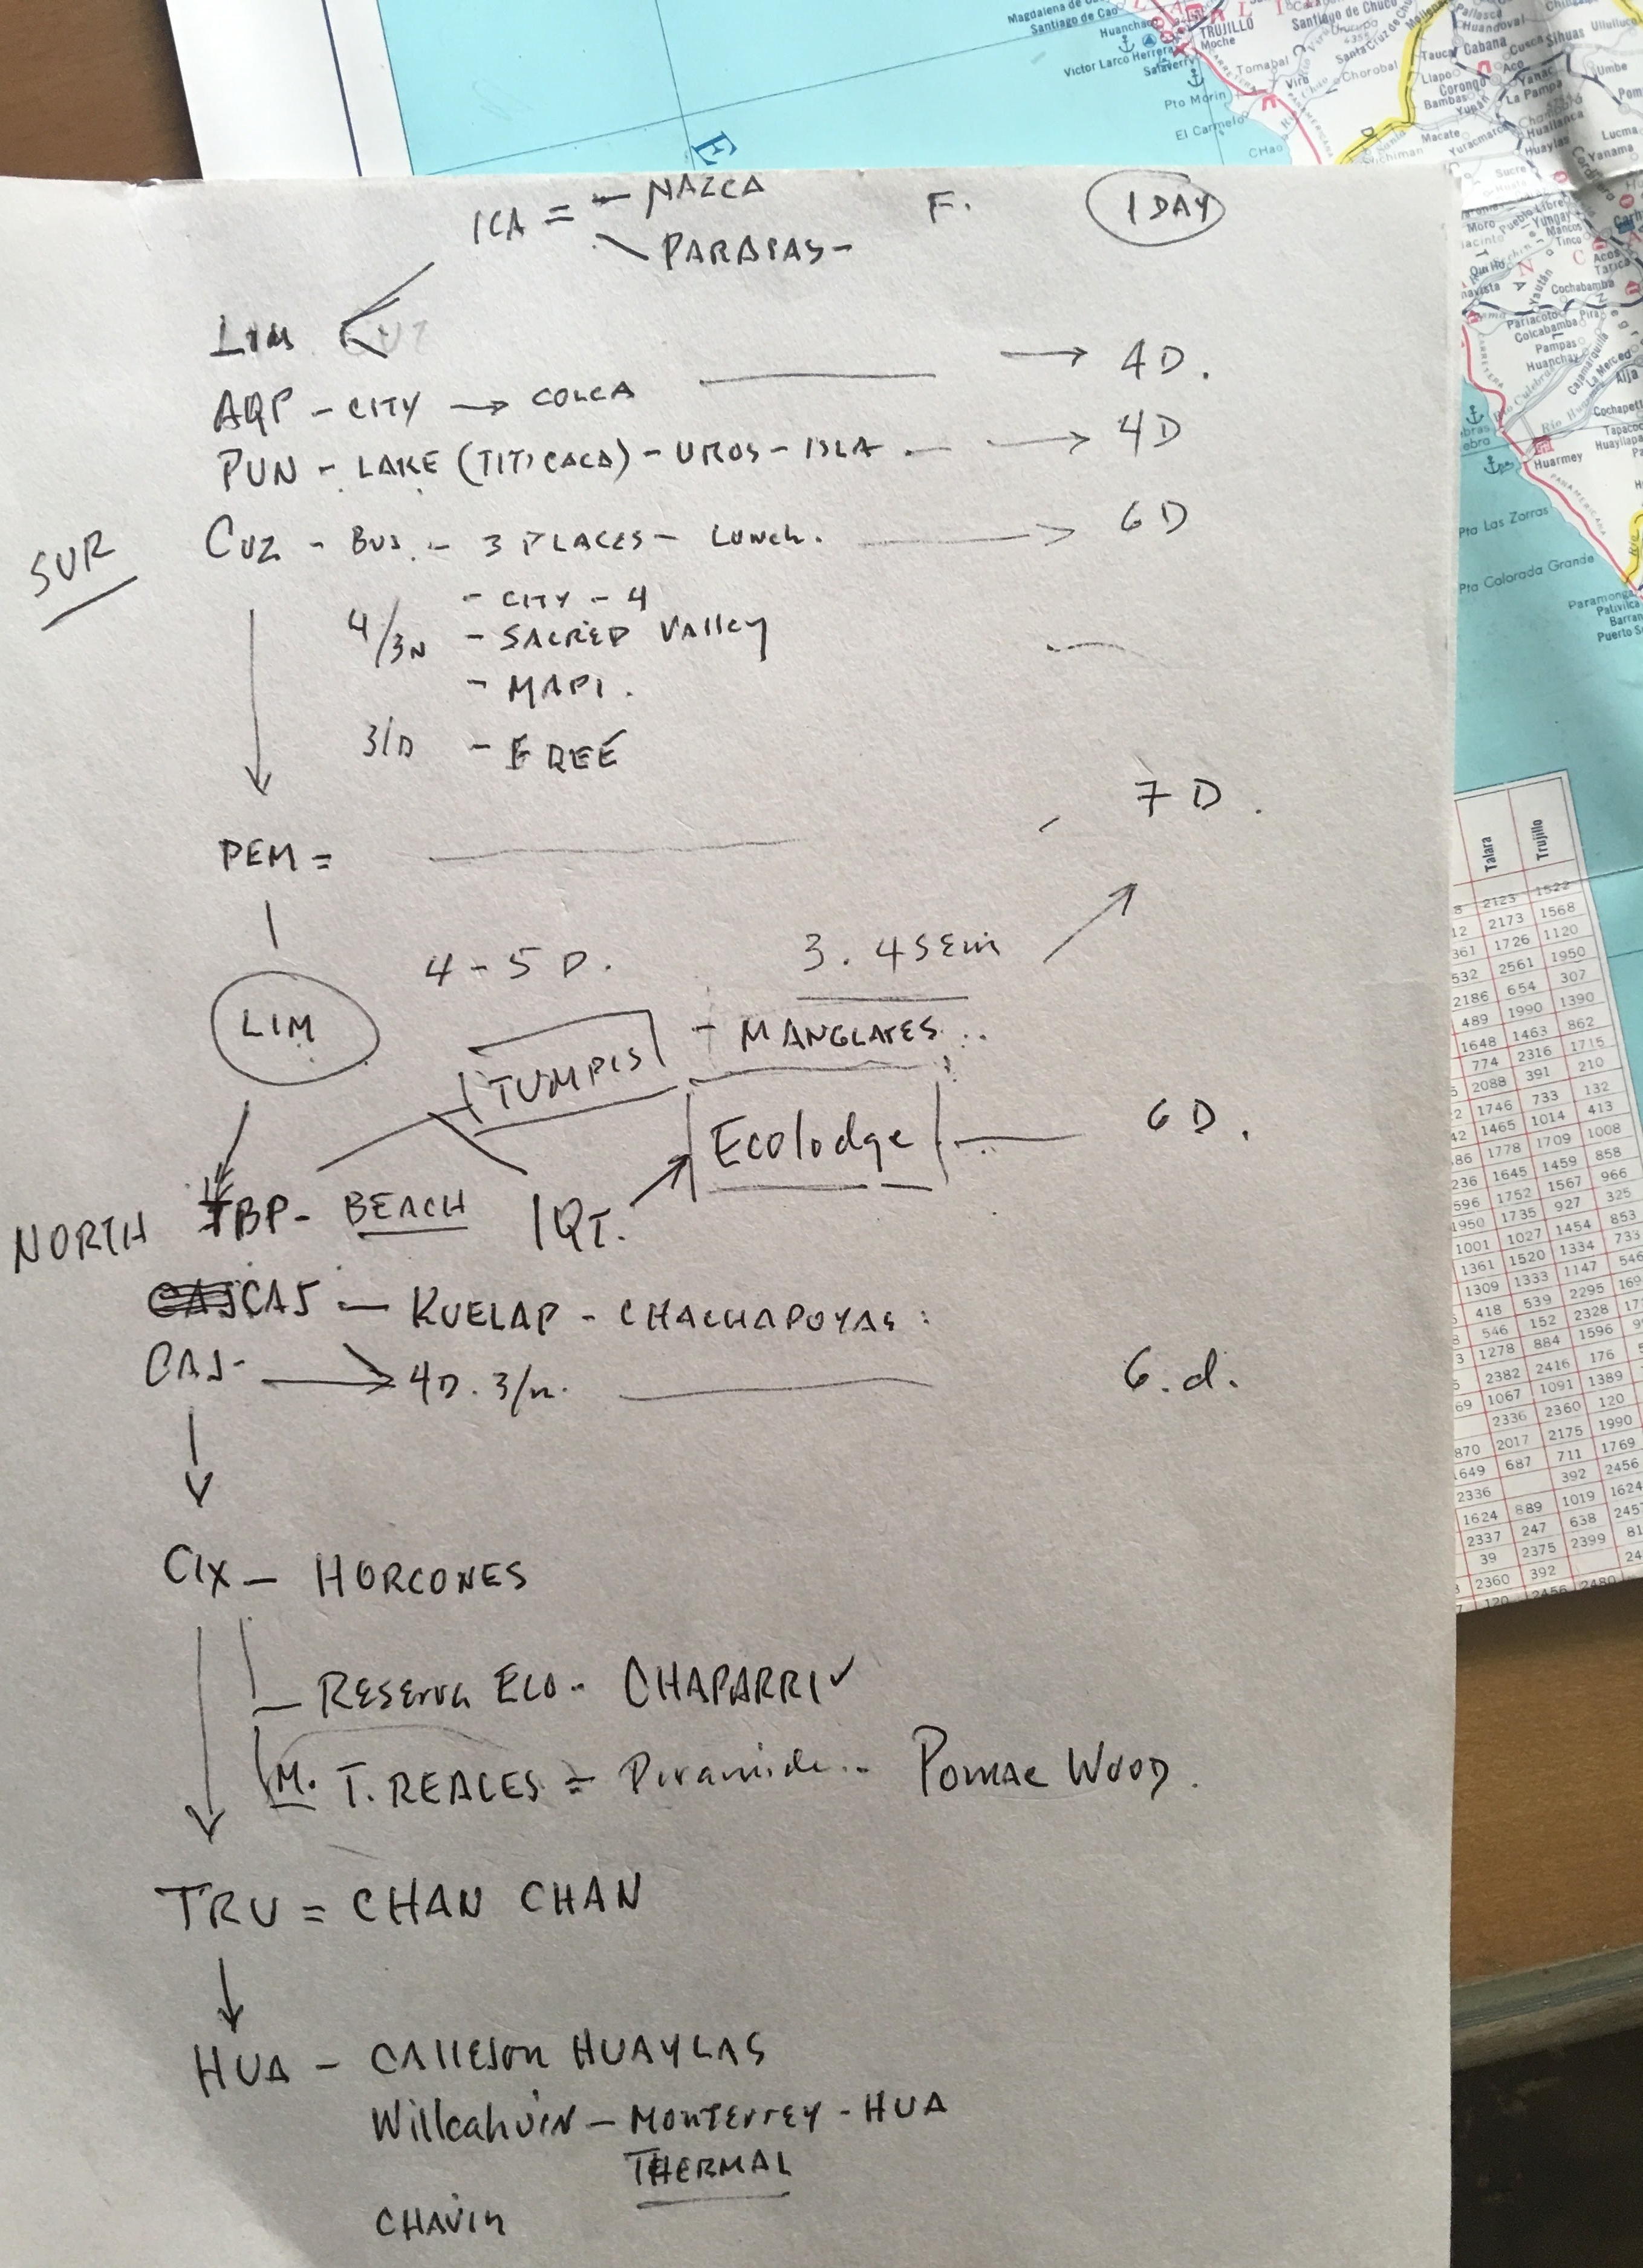 ICA = - NAZCA F. 1 DAY
PARAPAS-
LIM
AQP - CITY → COLCA → 4D.
PUN - LAKE (TITICACA) - UROS - ISLA → 4D
SUR
CUZ - BUS - 3 PLACES - LUNCH. → 6D
- CITY - 4
4/3N - SACRED VAllEY
- MAPI.
3/D - FREE
7 D.
PEM =
4 - 5 D. 3. 4 SEM
LIM - MANGLARES..
TUMPIS
Ecolodge 6 D.
NORTH TBP - BEACH IQT.
CAJ — KUELAP - CHACHAPOYAS:
CAJ- → 4D. 3/n. 6.d.
CIX — HORCONES
RESERVA ECO - CHAPARRI
M. T. REALES = Piramide.. POMAC WOOD.
TRU = CHAN CHAN
HUA - CAllEJON HUAYLAS
Willcahuin - MONTERREY - HUA
THERMAL
CHAVIN
E
TRUJILLO
Santiago de Cao
Huanchaco
Moche
Victor Larco Herrera
Salaverry
Santiago de Chuco
Tomabal
Viru
Chorobal
Pto Morin
El Carmelo
CHao
Cabana
Sihuas
Llapo
Corongo
Bambas
Yupan
La Pampa
Macate
Yuracmarca
Huallanca
Huaylas
Lucma
Yanama
Sucre
Moro
Pueblo Libre
Yungay
Mancos
Tinco
Cochabamba
Pariacoto
Pira
Colcabamba
Pampas
Huanchay
La Merced
Cochapeti
Huarmey
Pta Las Zorras
Pta Colorada Grande
Paramonga
Pativilca
Talara Trujillo
2123 1522
2173 1568
1726 1120
2561 1950
2186 654 307
489 1990 1390
1648 1463 862
774 2316 1715
2088 391 210
1746 733 132
1465 1014 413
1778 1709 1008
1645 1459 858
1752 1567 966
1950 1735 927 325
1001 1027 1454 853
1361 1520 1334 733
1309 1333 1147 546
418 539 2295
546 152 2328
1278 884 1596
2382 2416 176
1067 1091 1389
2336 2360 120
2017 2175 1990
687 711 1769
2336 392 2456
1624 889 1019 1624
2337 247 638
39 2375 2399
2360 392
120 2456 2480